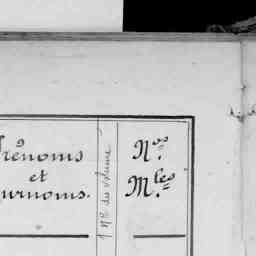 Prénoms
et
surnoms.
N° du volume
Nos
Mles